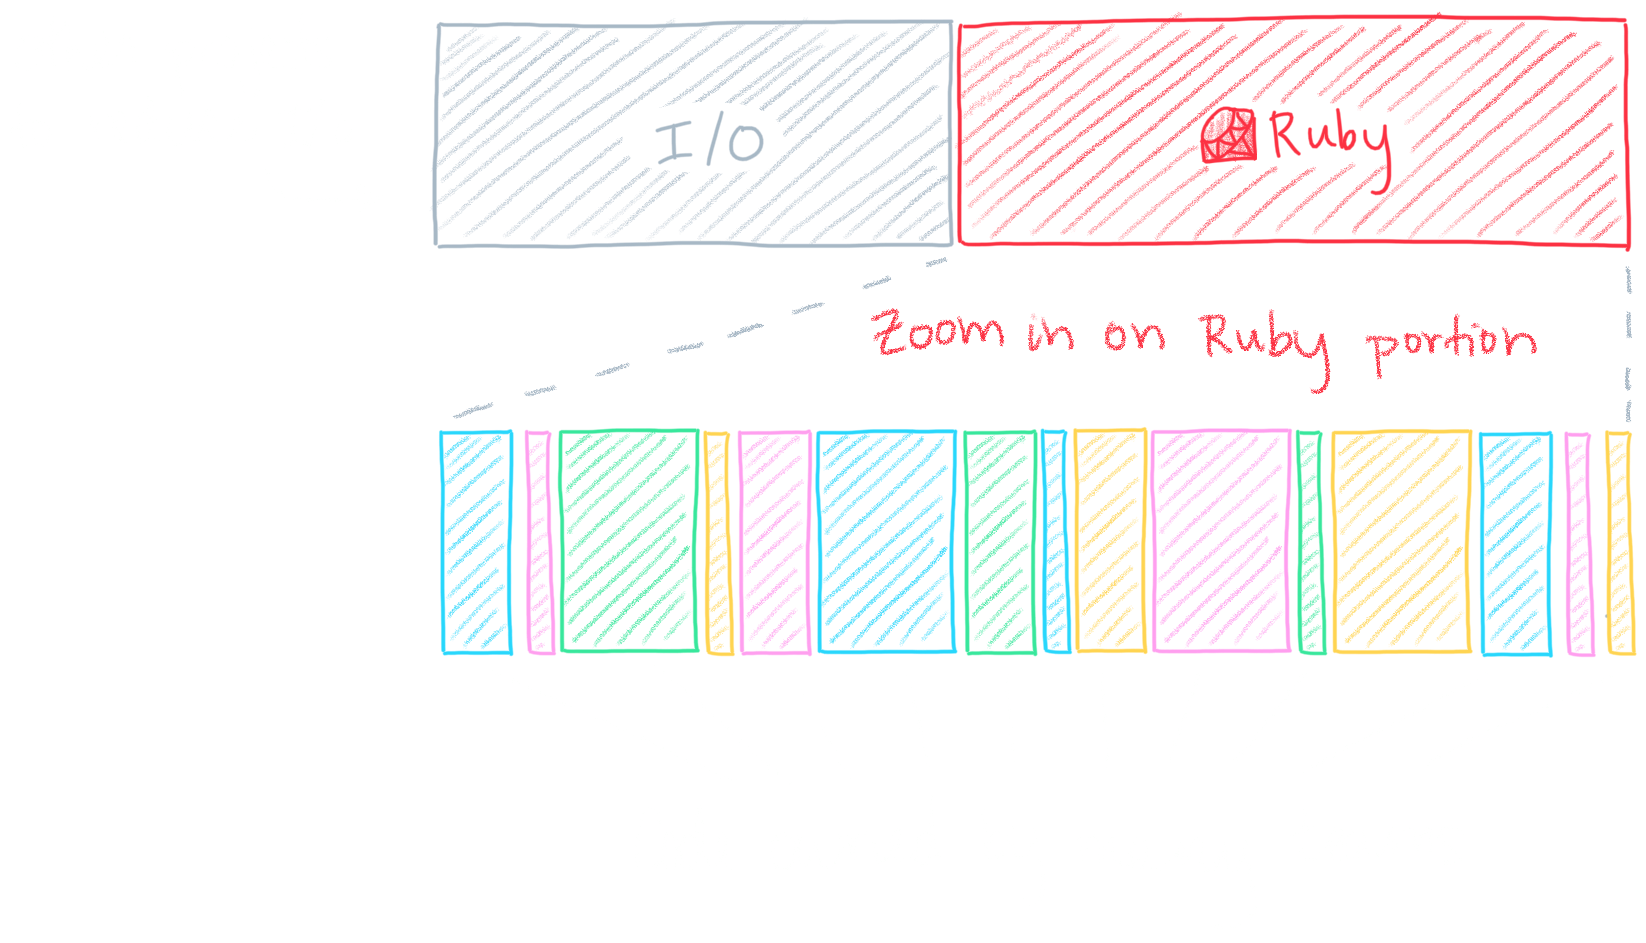 I/O
Ruby
Zoom in on Ruby portion